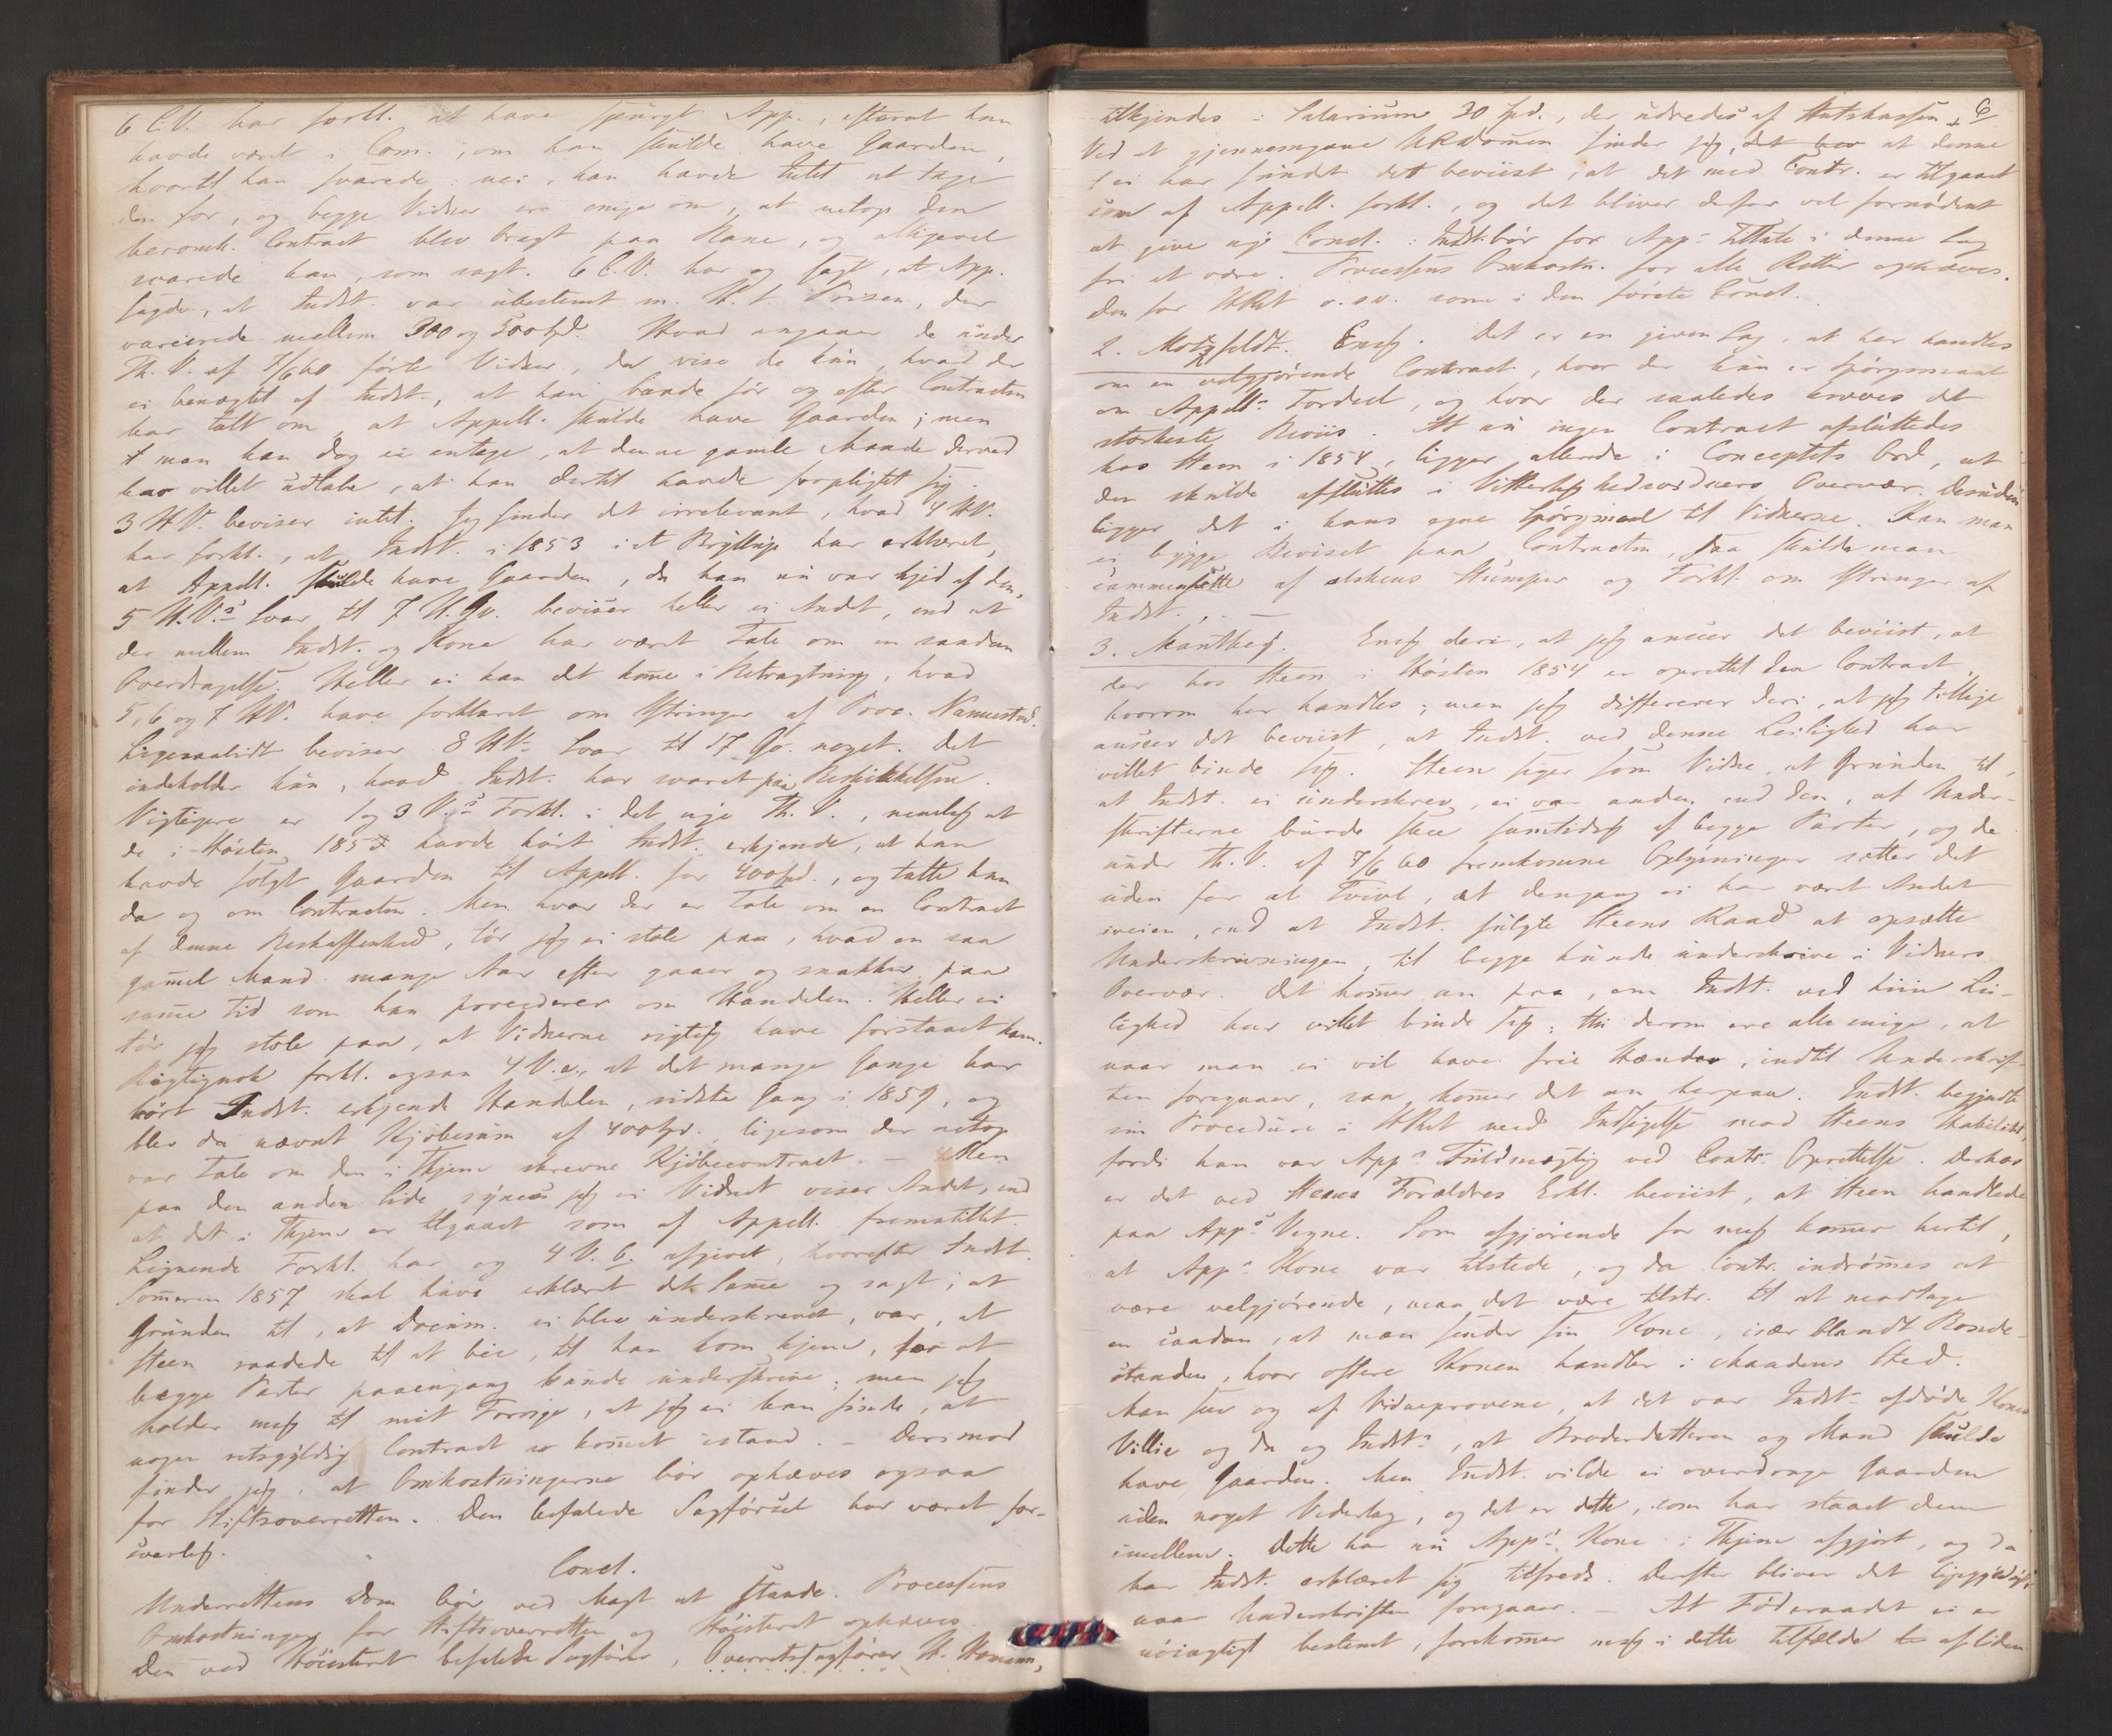 6 C.V. har forkl. at have spurgt App., efterat han
havde været i Com., om han skulde have Gaarden,
hvortil han svarede: nei, han havde Intet at tage
den for, og begge Vidner ere enige om, at netop den
beromh. Contract blev bragt paa Bane, og alligevel
svarede han, som sagt. 6 C.V. har og sagt, at App.
sagde, at Indst. var ubestemt m. H. t. Prisen, der
varierede mellem 300 og 500 Spd. Hvad angaaer de under
Th. V. af 7/6 60 førte Vidner, da vise de kun, hvad der
ei benægtet af Indst., at han baade før og efter Contracten
har talt om, at Appell. skulde have Gaarden; men
man kan dog ei antage, at denne gamle Mand derved
har villet udtale, at han dertil havde forpligtet sig.
3 HV. beviser intet. Jeg finder det irrelevant, hvad 4 HV.
har forkl., at Indst. i 1853 i et Bryllup har erklæret,
at Appell. skulde have Gaarden, da han nu var kjed af den,
5 H.V.s Svar til 7 H.Qv. beviser heller ei Andet, end at
der mellem Indst. og Kone har været Tale om en saadan
Overdragelse. Heller ei kan det komme i Betragtning, hvad
5, 6 og 7 HV. have forklaret om Ytringer af Proc. Namnestad.
Ligesaalidt beviser 8 HVs Svar til 17 Qv. noget. Det
indeholder kun, hvad Indst. har svaret paa Beskikkelsen.
Vigtigere er 1 og 3 V.s Forkl. i det nye Th. V., nemlig at
de i Høsten 1853 havde hørt Indst. erkjende, at han
havde solgt Gaarden til Appell. for 400 Spd., og talte han
da og om Contracten. Men hvor der er Tale om en Contract
af denne Beskaffenhed, tør jeg ei stole paa, hvad en saa
gammel Mand mange Aar efter gaaer og snakker paa
samme Tid som han procederer om Handelen. Heller ei
tør jeg stole paa, at Vidnerne rigtig have forstaaet ham.
Rigtignok forkl. ogsaa 4 V. a., at det mange Gange har
hørt Indst. erkjende Handelen, sidste Gang i 1859, og
blev da nævnt Kjøbesum af 400 Spd. ligesom der netop
var Tale om den i Hjem skrevne Kjøbecontract. — Men
paa den anden Side synes jeg ei Vidnet viser Andet, end
at det i Hjem er tilgaaet som af Appell. fremstillet.
Lignende Forkl. har og 4 V. b. afgivet, hvorefter Indst.
Sommeren 1857 skal have erklæret det Samme og sagt, at
Grunden til, at Docum. ei blev underskrevet, var, at
Steen raadede til at bie, til han kom hjem, for at
begge Parter paaengang kunde underskrive; men jeg
holder mig til mit Forrige, at jeg ei kan finde, at
nogen retsgyldig Contract er kommet istand. — Derimod
finder jeg, at Omkostningerne bør ophæves ogsaa
for Stiftsoverretten. Den befalede Sagførsel har været for-
svarlig.
Concl.
Underrettens Dom bør ved Magt at stande. Processens
Omkostninger for Stiftsoverretten og Høiesteret ophæves.
Den ved Høiesteret befalede Sagfører, Overretssagfører H. Homann,
6
tilkjendes i Salarium 30 Spd., der udredes af Statskassen.
Ved at gjennemgaae URdommen finder jeg, at denne
ei har fundet det beviist, at det med Contr. er tilgaaet
som af Appell. forkl., og det bliver derfor vel fornødent
at give ny Concl.: Indst. bør for App.s Tiltale i denne Sag
fri at være. Processens Omkostn. for alle Retter ophæves.
Den for HRet o.s.v. som i den første Concl.
2. Motzfeldt. Enig. Det er en given Sag, at her handles
om en velgjørende Contract, hvor der kun er Spørgsmaal
om Appells Fordeel, og hvor der saaledes kræves det
stærkeste Beviis. At nu ingen Contract afsluttedes
hos Steen i 1854, ligger allerede i Conceptets Ord, at
den skulde afsluttes i Vitterlighedsvidners Overvær. Desuden
ligger det i hans egne Spørgsmaal til Vidnerne. Kan man
ei bygge Beviset paa Contracten, saa skulde man
sammensætte af alskens Stumper og Forkl. om Ytringer af
Indst. —
3. Manthey. Enig deri, at jeg anseer det beviist, at
der hos Steen i Høsten 1854 er oprettet den Contract,
hvorom her handles; men jeg differerer deri, at jeg tillige
anseer det beviist, at Indst. ved denne Leilighed har
villet binde sig. Steen siger som Vidne, at Grunden til,
at Indst. ei underskrev, ei var anden end den, at Under-
skrifterne burde skee samtidig af begge Parter, og de
under Th. V. af 7/6 60 fremkomne Oplysninger sætter det
uden for al Tvivl, at dengang ei har været Andet
iveien, end at Indst. fulgte Steens Raad at opsætte
Underskrivningen, til begge kunde underskrive i Vidners
Overvær. Det kommer an paa, om Indst. ved hiin Lei-
lighed har villet binde sig; thi derom ere alle enige, at
naar man ei vil have frie Hænder, indtil Underskrif-
ten foregaaer, saa kommer det an herpaa. Indst. begyndte
sin Procedure i HRet med Indsigelse mod Steens Habilitet,
fordi han var App.s Fuldmægtig ved Contr.s Oprettelse. Derhos
er det ved Steens Forældres Erkl. beviist, at Steen handlede
paa App.s Vegne. Som afgjørende for mig kommer hertil,
at App.s Kone var tilstede, og da Contr. indrømmes at
være velgjørende, maa det være tilstr. til at modtage
en saadan, at man sender sin Kone, især blandt Bonde-
standen, hvor oftere Konen handler i Mandens Sted.
Man seer og af Vidneprovene, at det var Indst.s afdøde Kones
Villie og da og Indst.s, at Broderdatteren og Mand skulde
have Gaarden. Men Indst. vilde ei overdrage Gaarden
uden noget Vederlag, og det er dette, som har staaet dem
imellem. Dette har nu App.s Kone i Hjem afgjort, og da
har Indst. erklæret sig tilfreds. Derefter bliver det ligegyldigt,
naar Underskriften foregaaer. — At Føderaadet ei er
nøiagtigt bestemt, forekommer mig i dette Tilfælde af liden